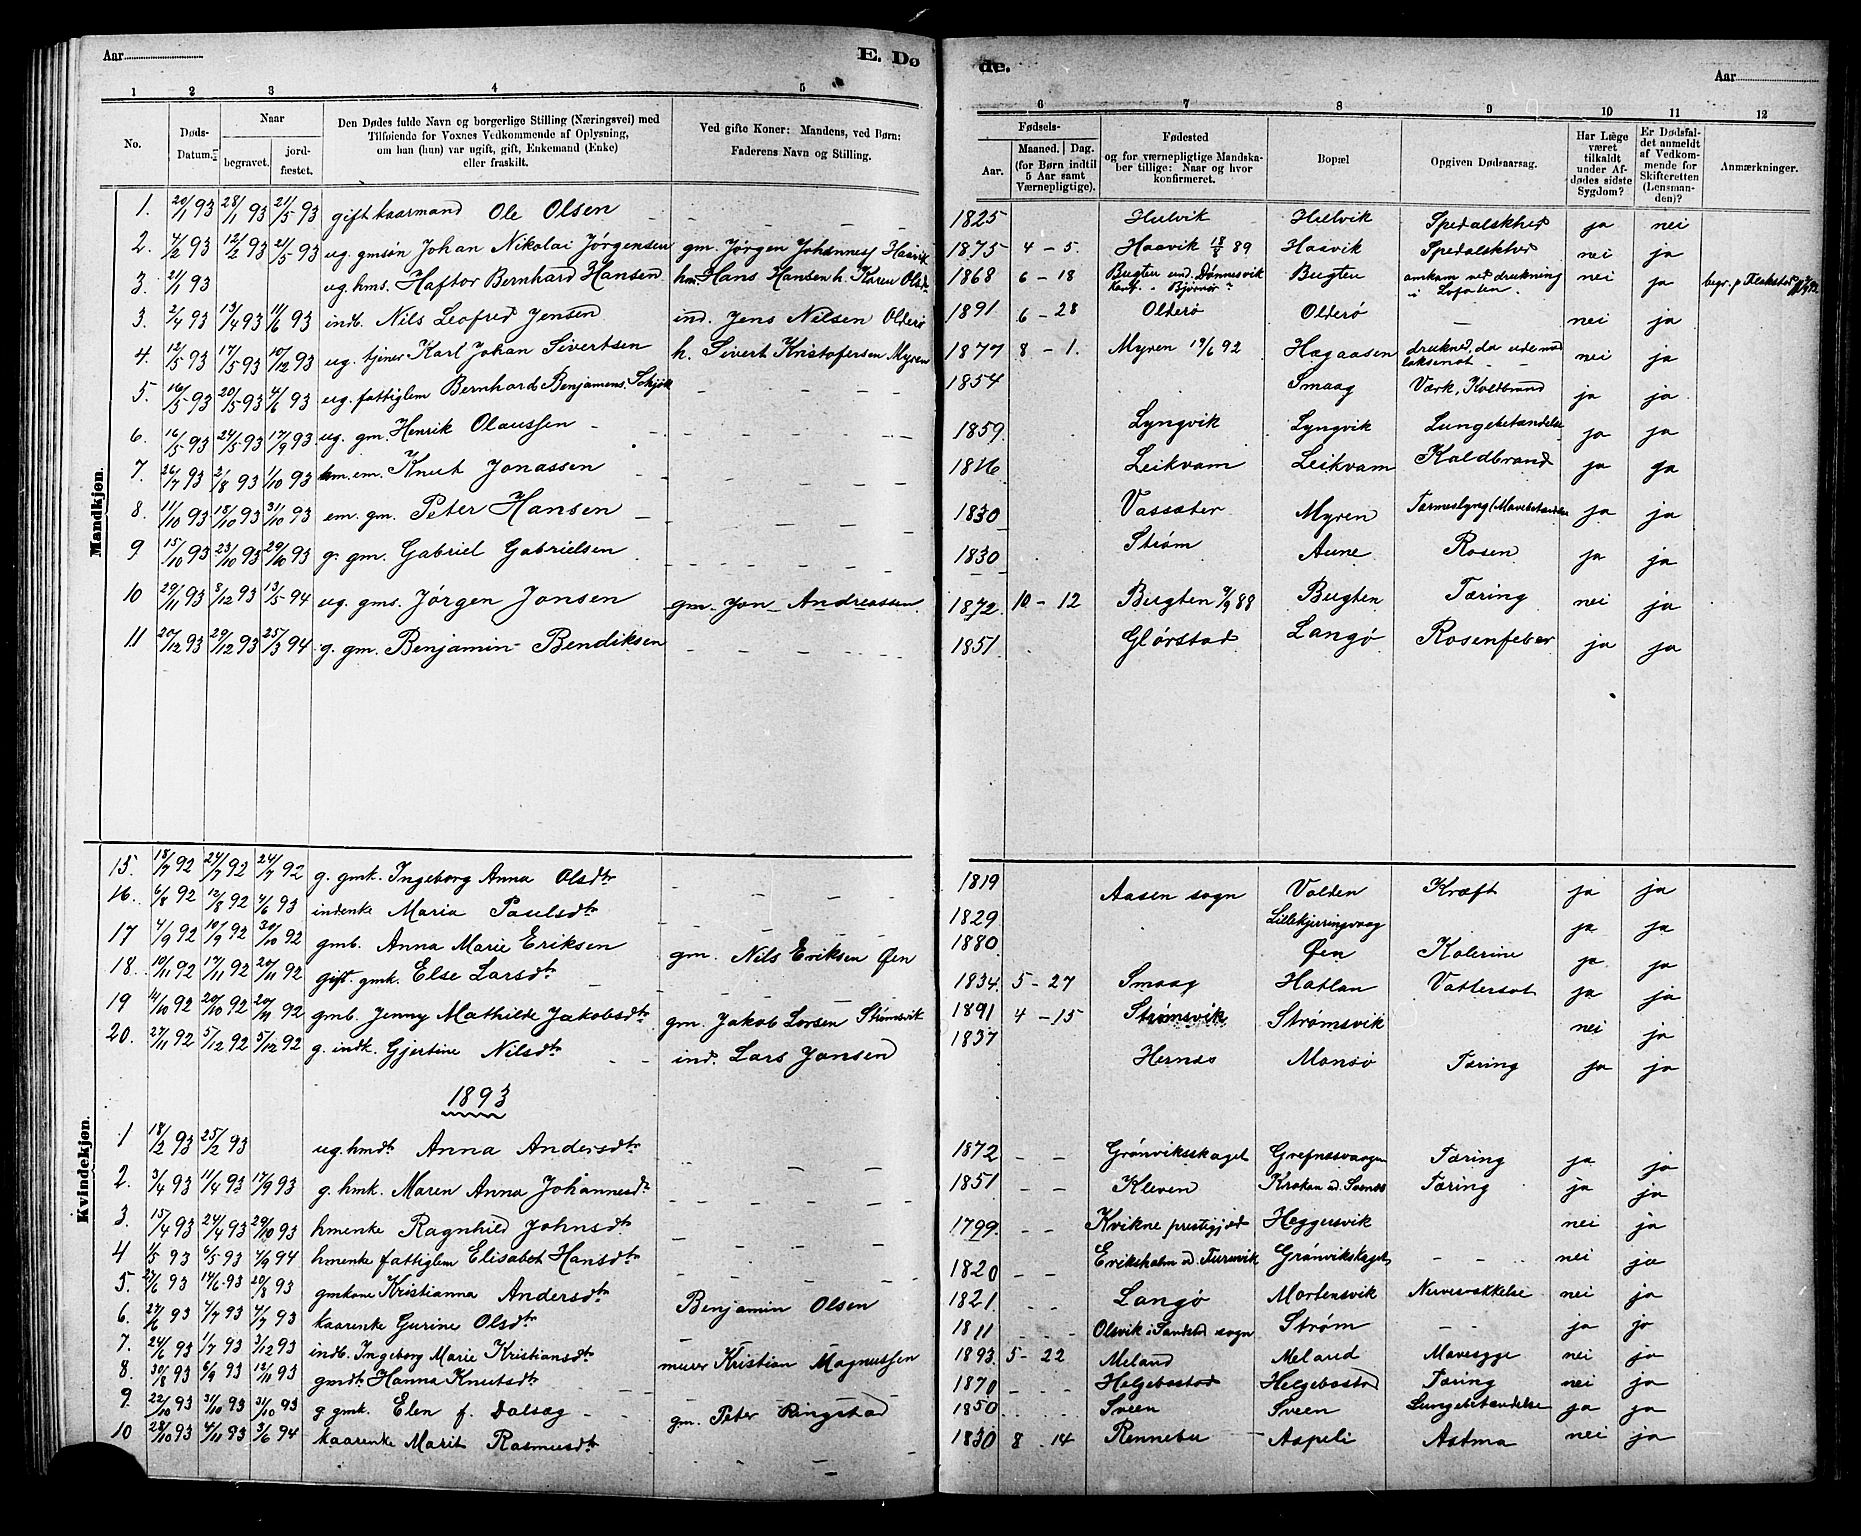 Aar
E. Døde.
Aar
1 2 3 4 5 6 7 8 9 10 11 12
No. Døds-Datum. Naar begravet. jordfæstet. Den Dødes fulde Navn og borgerlige Stilling (Næringsvei) med Tilføiende for Voxnes Vedkommende af Oplysning, om han (hun) var ugift, gift, Enkemand (Enke) eller fraskilt. Ved gifte Koner: Mandens, ved Børn: Faderens Navn og Stilling. Fødsels- Aar. Maaned. Dag. (for Børn indtil 5 Aar samt Værnepligtige). Fødested og for værnepligtige Mandskaber tillige: Naar og hvor konfirmeret. Bopæl Opgiven Dødsaarsag. Har Læge været tilkaldt under Afdødes sidste Sygdom? Er Dødsfaldet anmeldt af Vedkommende for Skifteretten (Lensmanden)? Anmærkninger.
Mandkjøn.
1. 20/1 93 28/1 93 21/5 93 gift kaarmand Ole Olsen 1825 Hulvik Hulvik Spedalskhed ja nei
2. 4/2 93 12/2 93 21/5 93 ug. gmsøn Johan Nikolai Jørgensen gm. Jørgen Johannes Haavik 1875 4 - 5. Haavik 18/8 89 Haavik Spedalskhed nei ja
3. 21/1 93 ug. hms. Haftor Bernhard Hansen hm. Hans Hansen h. Karen Olsdr 1868 6 - 18 Bugten und. Dønnesvik Konf. Bjørnør Bugten omkom ved drukning i Lofoten. nei ja begr. p Flakstad
3. 2/4 93 13/4 93 11/6 93 indb. Nils Leofred Jensen ind. Jens Nilsen Olderø 1891 6 - 28 Olderø Olderø — nei ja
4. 12/5 93 17/5 93 10/12 93 ug. tjener Karl Johan Sivertsen h. Sivert Kristofersen Myren 1877 8 - 1. Myren 19/6 92 Hagaasen druknede, da ude med laksenot nei ja
5. 16/5 93 20/5 93 4/6 93 ug. fattiglem Bernhard Benjamens. 1854 Smaag Værk, Koldbrand ja ja
6. 16/5 93 24/5 93 17/9 93 ug. gm. Henrik Olaussen 1859 Lyngvik Lyngvik Lungebetændelse ja ja
7. 26/7 93 2/8 93 1/10 93 hm. em. Knut Jonassen 1816 Leikvam Leikvam Koldbrand ja ja
8. 11/10 93 18/10 93 31/10 93 em. gm. Peter Hansen 1830 Vassæter Myren Tarmeslyng (Mavebetændelse ja ja
9 15/10 93 23/10 93 29/10 93 g. gm. Gabriel Gabrielsen 1830 Strøm Aune Rosen ja ja
10 29/11 93 8/12 93 13/5 94 ug. gms. Jørgen Jonsen gm. Jon Andreassen 1872 10 - 12 Bugten 9/9 88 Bugten Tæring nei ja
11 20/12 93 29/12 93 25/3 94 g. gm. Benjamin Bendiksen 1851 Glørstad Langø Rosenfeber ja ja
Kvindekjøn.
15. 18/7 92 24/7 92 24/7 92 g. gmk. Ingeborg Anna Olsdtr 1819 Aasen sogn Valden Kræft ja ja
16. 6/8 92 12/8 92 4/6 93 indenke Maria Paulsdtr 1829 Lillekjerringvaag ja ja
17 4/9 92 10/9 92 30/10 92 gmb. Anna Marie Eriksen gm. Nils Eriksen Øen 1880 Øen Kolerine ja ja
18. 10/11 92 17/11 92 20/11 92 gift gmk. Else Larsdtr 1834 5 - 27 Smaag Hatlan Vattersot ja ja
19 14/10 92 20/10 92 20/11 92 gmb. Jenny Mathilde Jakobsdtr gm. Jakob Larsen Strømsvik 1891 4 - 15 Strømsvik Strømsvik nei ja
20. 27/11 92 5/12 92 5/12 92 g. indk. Gjertine Nilsdtr ind. Lars Jonsen 1837 Hernes Monsø Tæring ja ja
1893
1 18/2 93 25/2 93 ug. hmdtr Anna Andersdtr 1872 Grønviksskaget Grefnæsvaagen Tæring ja ja
2. 3/4 93 11/4 93 17/9 93 g. hmk. Maren Anna Johannesdtr 1851 Kleven Kroken ud. Tæring ja ja
3. 15/4 93 24/4 93 29/10 93 hmenke Ragnhild Johnsdtr 1799 Kvikne prestegjed Heggersvik nei ja
4 1/5 93 6/5 93 4/9 94 hmenke fattiglem Elisabet Hansdtr 1820 Eriksholm ud. Grønvikskaget nei ja
5. 23/6 93 14/6 93 20/8 93 gmkone Kristianna Andersdtr Benjamin Olsen 1821 Langø Mortensvik Nervesvækkelse nei ja
6. 27/6 93 4/7 93 4/7 93 kaarenke Gurine Olsdtr 1811 Olsvik i Sandstad sogn Strøm ja ja
7. 24/6 93 1/7 93 3/12 93 indb. Ingeborg Marie Kristiansdtr murer Kristian Magnussen 1893 5 - 22 Meland Meland Mavesyge nei ja
8. 30/8 93 6/9 93 12/11 93 gmdtr Hanna Knutsdtr 1870 Helgebostad Helgebostad Tæring nei ja
9. 22/10 93 31/10 93 31/10 93 g gmk. Elen f. Dalsæg gm. Peter Ringstad 1850 Sveen Sveen Lungebetændelse ja ja
10 28/10 93 4/11 93 3/6 94 kaarenke Marit Rasmusdtr 1830 8 - 14 Rennebu Aspeli Astma nei ja